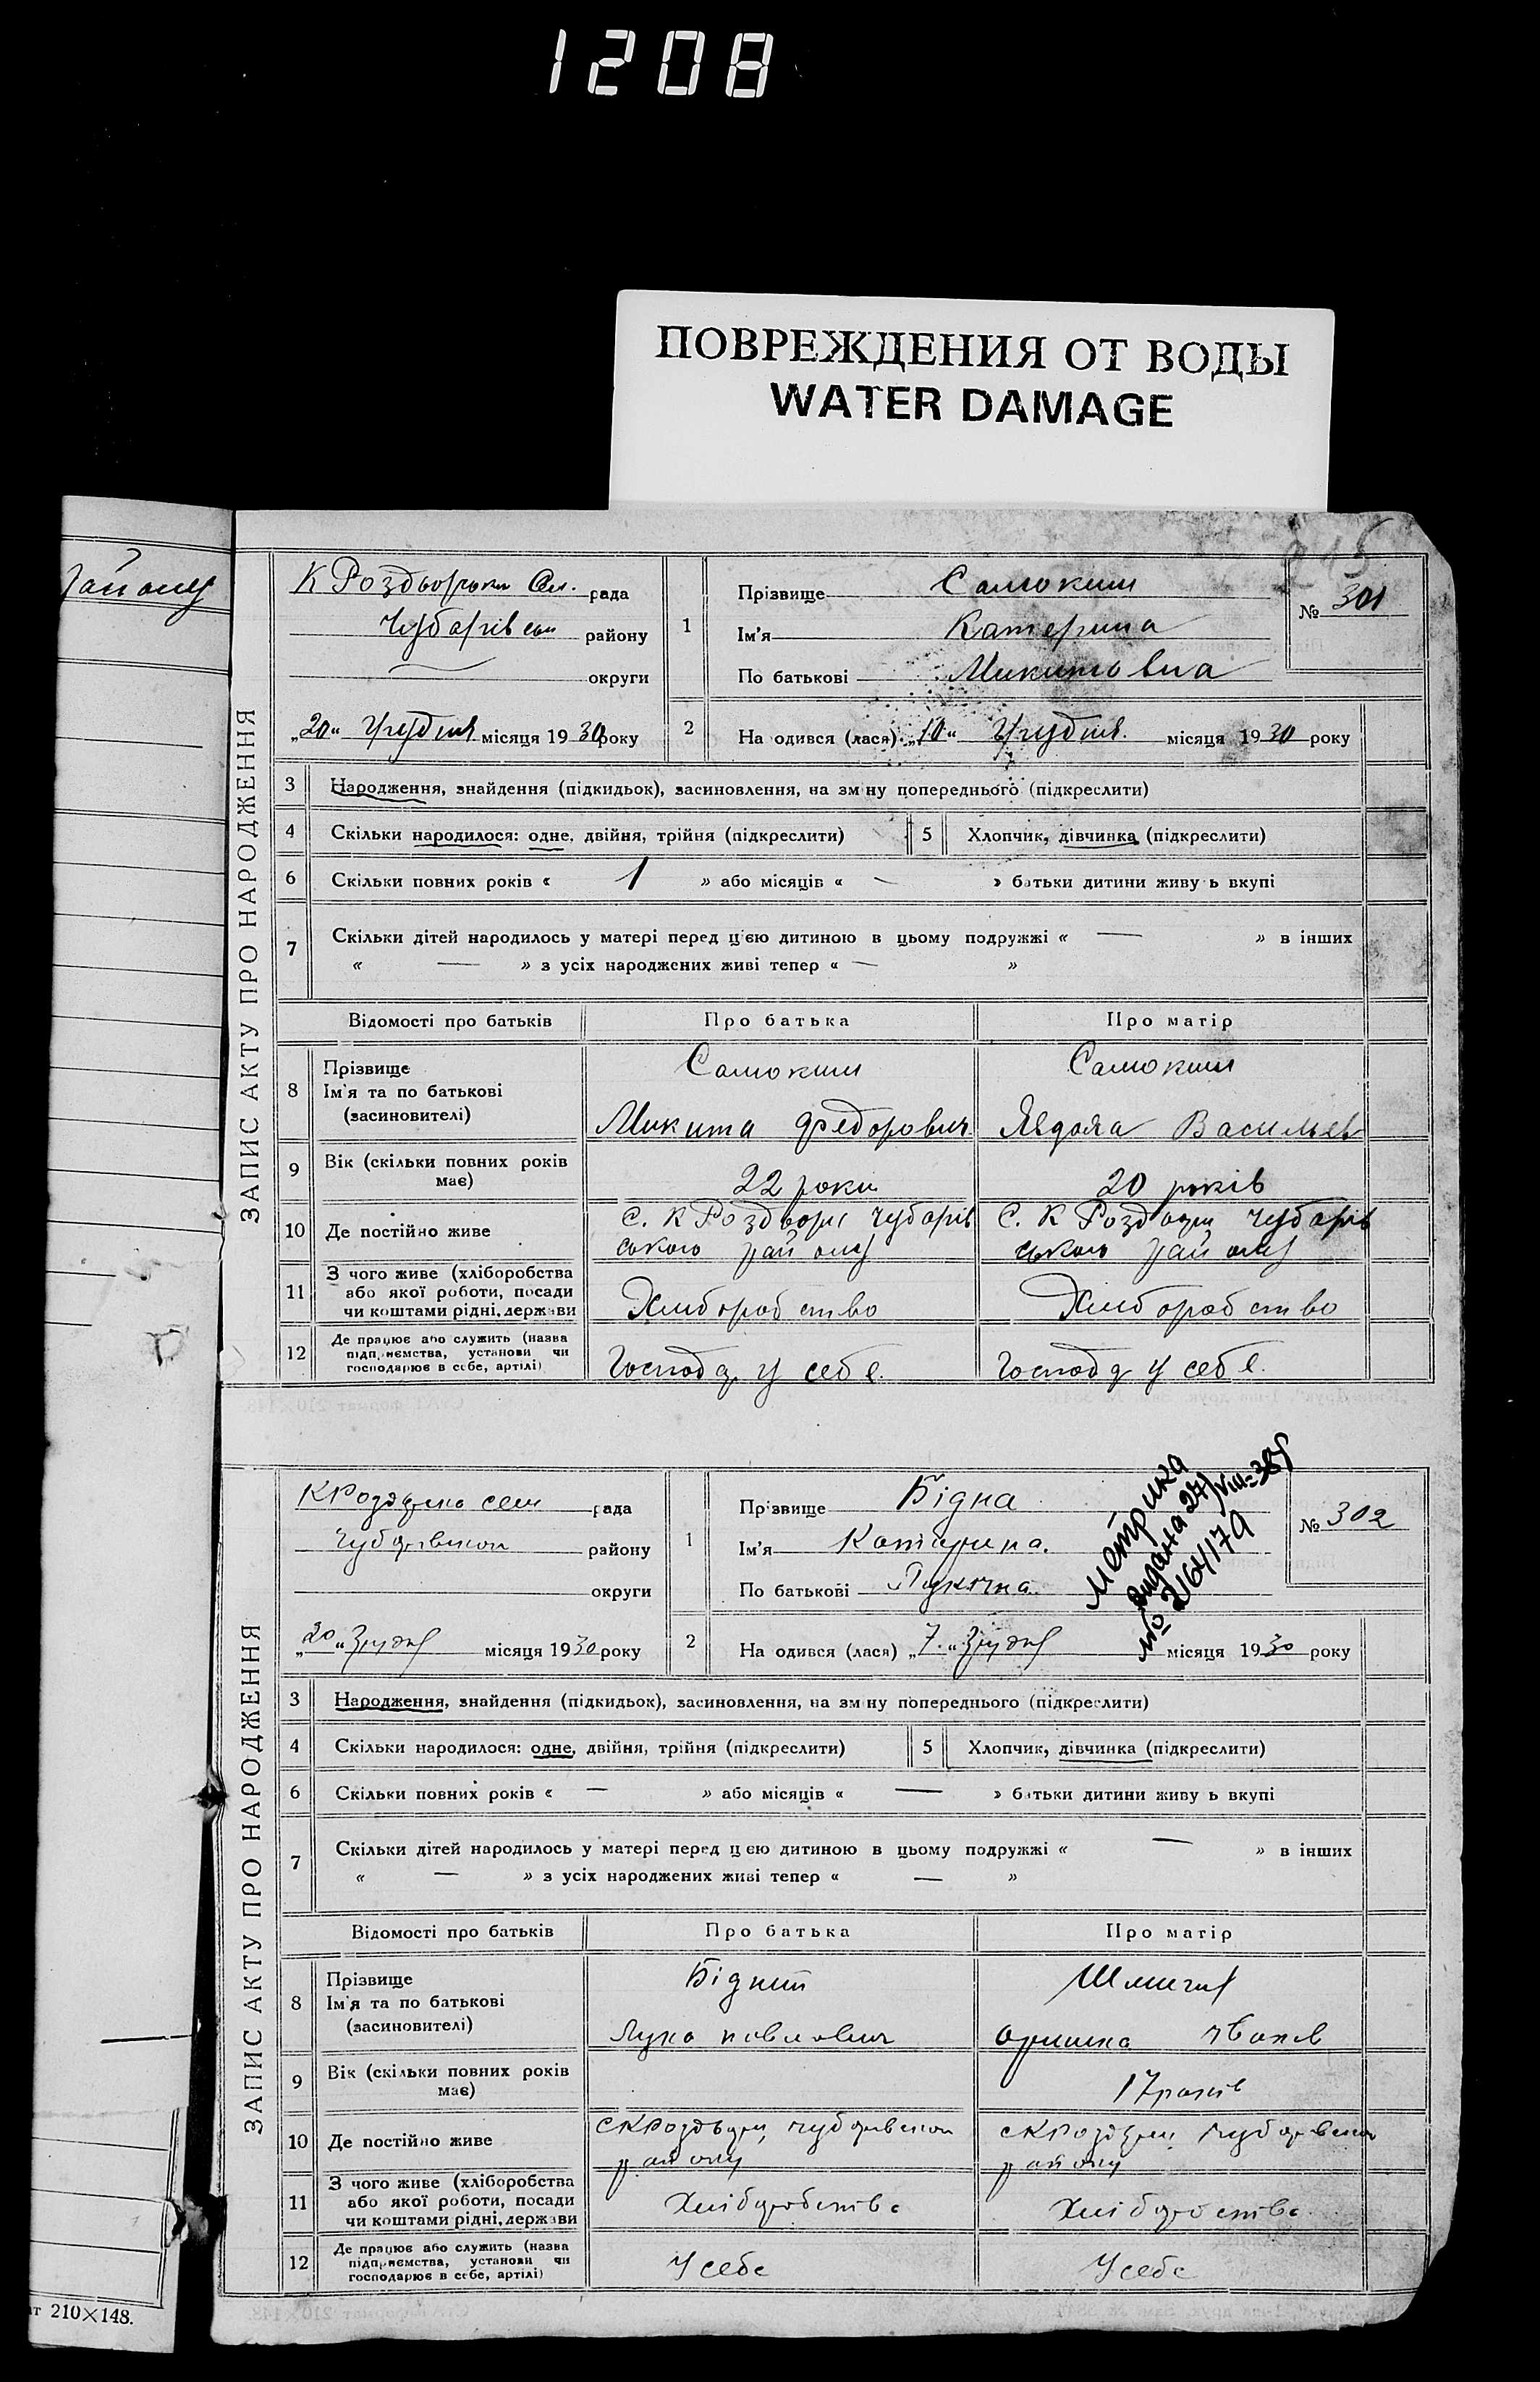 1208
ПОВРЕЖДЕНИЯ ОТ ВОДЫ
WATER DAMAGE
району
ЗАПИС АКТУ ПРО НАРОДЖЕННЯ
рада
Чубарівськ району
округи
„20“ Грудня місяця 1930 року
1
Прізвище Самокиш
Ім'я Катерина
По батькові Микитовна
№ 301
2 На одився (лася) „10“ Грудня місяця 1930 року
3 Народження, знайдення (підкидьок), засиновлення, на зміну попереднього (підкреслити)
4 Скільки народилося: одне, двійня, трійня (підкреслити) 5 Хлопчик, дівчинка (підкреслити)
6 Скільки повних років « 1 » або місяців « — » батьки дитини живу ь вкупі
7 Скільки дітей народилось у матері перед цією дитиною в цьому подружжі « — » в інших
« — » з усіх народжених живі тепер « — »
Відомості про батьків Про батька Про матір
8 Прізвище
Ім'я та по батькові
(засиновителі)
Самокиш Самокиш
Микита Федорович Явдоха Васильев
9 Вік (скільки повних років має) 22 роки 20 років
10 Де постійно живе
С. К Роздори Чубарівського району С. К Роздори Чубарівського району
11 З чого живе (хліборобства або якої роботи, посади чи коштами рідні, держави
Хліборобство Хліборобство
12 Де працює або служить (назва підприємства, установи чи господарює в себе, артілі)
Господ у себе. Господ у себе.
ЗАПИС АКТУ ПРО НАРОДЖЕННЯ
рада
району
округи
„20“ Грудня місяця 1930 року
1
Прізвище Бідна
Ім'я Катерина.
По батькові
№ 302
Метрика
видана
№
2 На одився (лася) „7.“ Грудня місяця 1930 року
3 Народження, знайдення (підкидьок), засиновлення, на зміну попереднього (підкреслити)
4 Скільки народилося: одне, двійня, трійня (підкреслити) 5 Хлопчик, дівчинка (підкреслити)
6 Скільки повних років « — » або місяців « — » батьки дитини живу ь вкупі
7 Скільки дітей народилось у матері перед цією дитиною в цьому подружжі « — » в інших
« — » з усіх народжених живі тепер « — »
Відомості про батьків Про батька Про матір
8 Прізвище
Ім'я та по батькові
(засиновителі)
Бідний
Лука Павлович Оришка Иванів
9 Вік (скільки повних років має) 17 років
10 Де постійно живе
району району
11 З чого живе (хліборобства або якої роботи, посади чи коштами рідні, держави
Хліборобство Хліборобство
12 Де працює або служить (назва підприємства, установи чи господарює в себе, артілі)
У себе У себе
210×148.